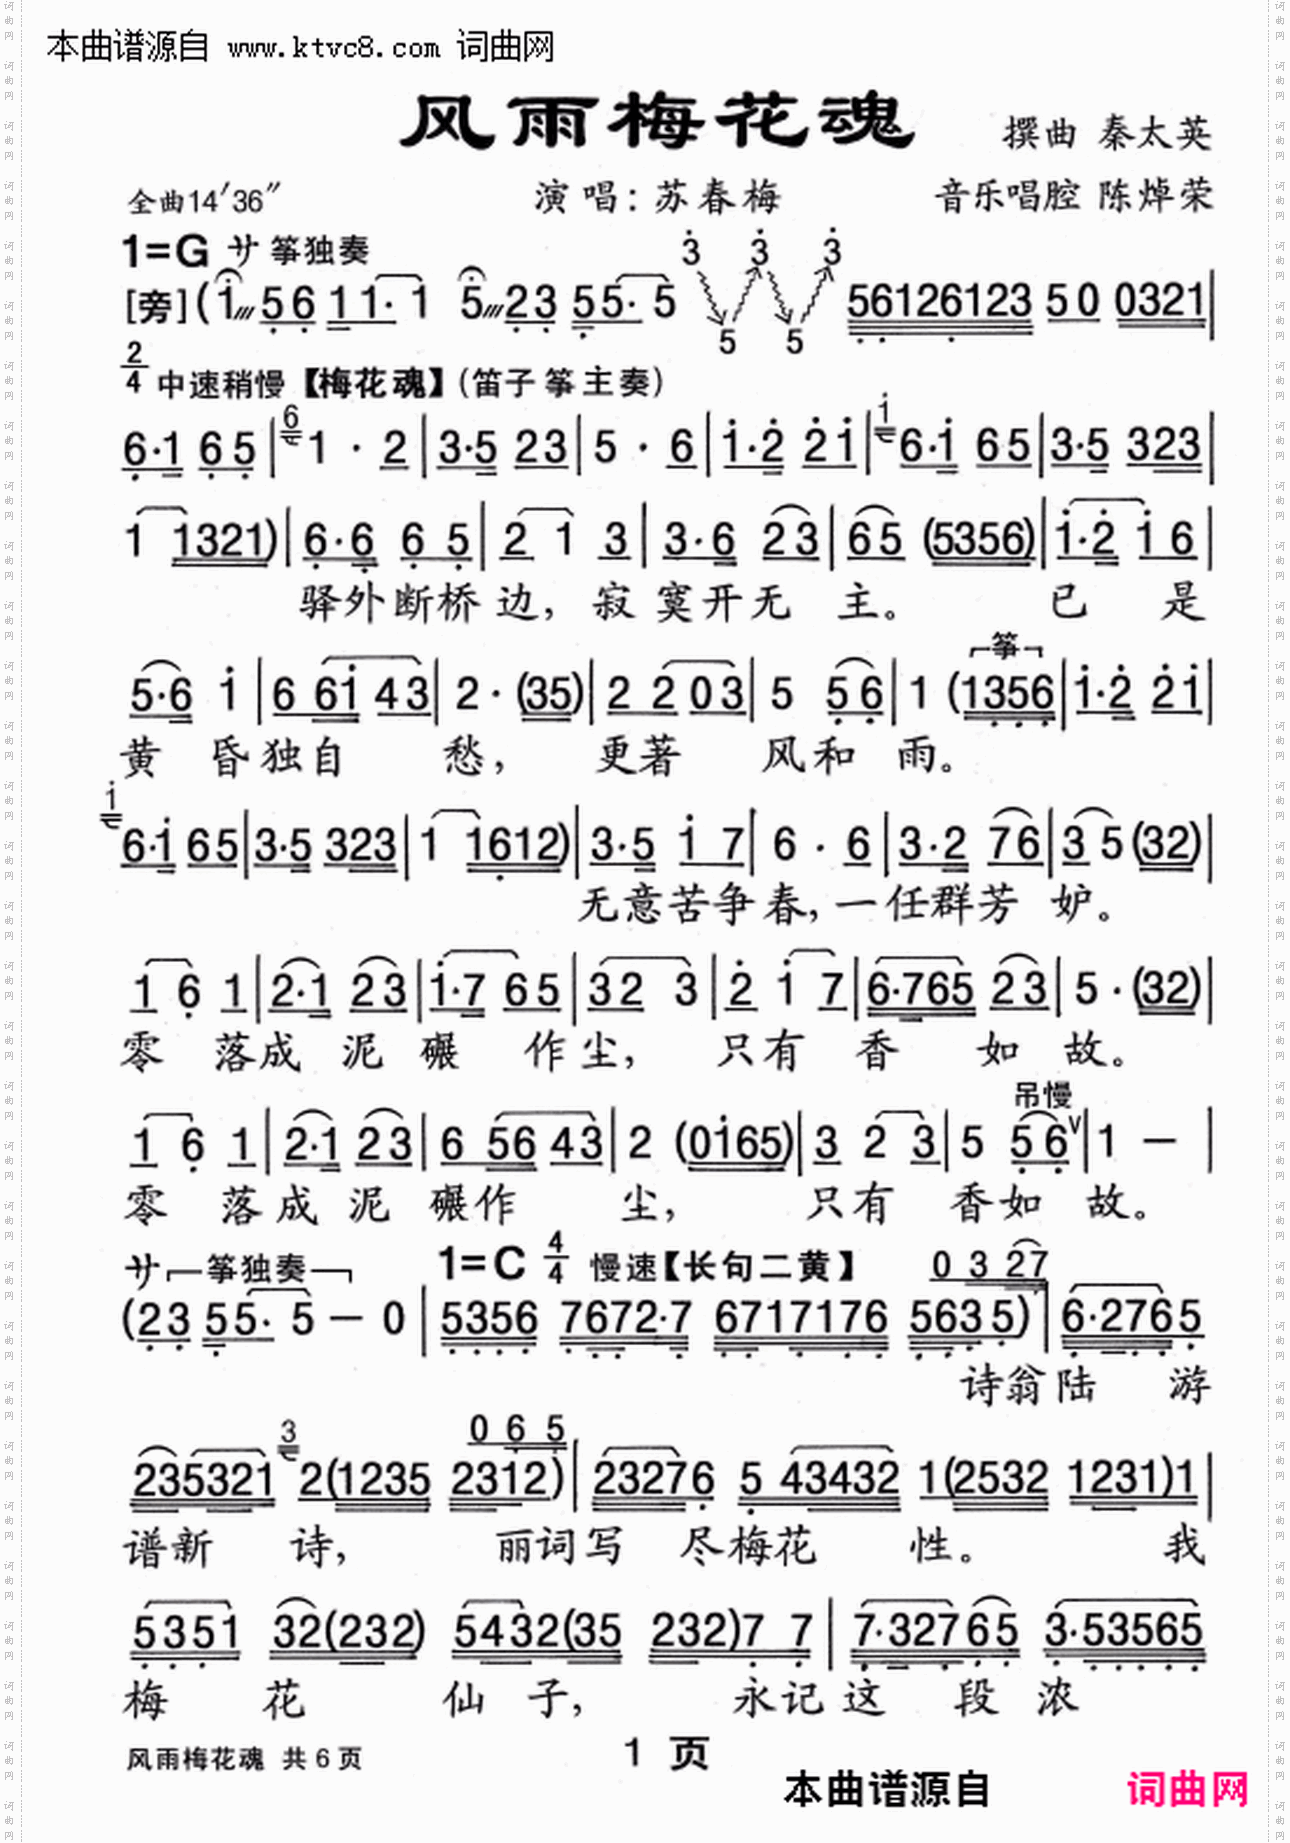 本曲谱源自 www.ktvc8.com 词曲网
风雨梅花魂
撰曲 秦太英
全曲14′36″ 演唱:苏春梅 音乐唱腔 陈焯荣
1=G サ 筝独奏
[旁](1 56 11· 1 5 23 55· 5 3 5 3 5 3 56126123 50 0321|
2/4 中速稍慢【梅花魂】(笛子 筝主奏)
6·1 65|6 1 · 2|3·5 23|5 · 6|1·2 21|1 6·1 65|3·5 323|
1 1321)|6·6 6 5|2 1 3|3·6 23|65 (5356)|1·2 16|
驿外断桥边,寂寞开无主。 已 是
筝
5·6 1|6 61 43|2·(35)|2 2 03|5 56|1 (1356|1·2 21|
黄 昏独自 愁, 更著 风和 雨。
1 6·1 65|3·5 323|1 1612)|3·5 1 7|6 . 6|3·2 76|3 5(32)|
无意苦争春,一任群芳 妒。
1 6 1|2·1 23|1·7 65|32 3|2 1 7|6·765 23|5·(32)|
零 落成 泥 碾 作尘, 只有 香 如 故。
吊慢
1 6 1|2·1 23|6 56 43|2 (0165)|3 2 3|5 56V|1 — |
零 落成 泥 碾作 尘, 只有 香如 故。
サ 筝独奏 1=C 4/4 慢速【长句二黄】 0 3 27
(23 55· 5 — 0|5356 7672·7 6717176 5635)|6·2765
诗翁陆 游
3 0 6 5
235321 2(1235 2312)|23276 5 43432 1(2532 1231)1|
谱新 诗, 丽词写 尽梅花 性。 我
5351 32(232) 5432(35 232)7 7|7·32765 3·53565
梅 花 仙 子, 永记这 段 浓
风雨梅花魂 共6页 1 页
本曲谱源自 词曲网